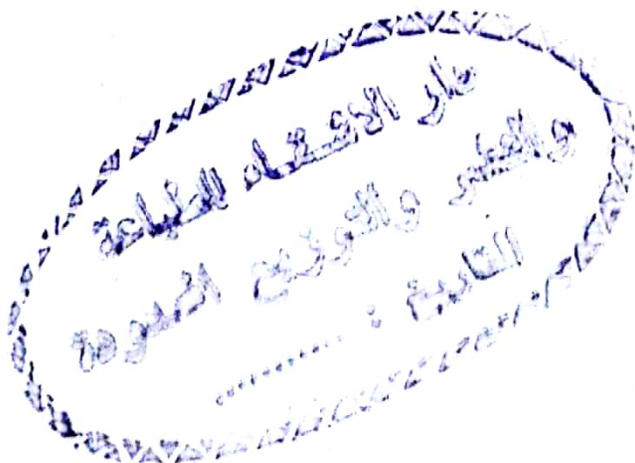 دار الاشقاء للطباعة
والنشر والتوزيع الخلوص
التاريخ : ............